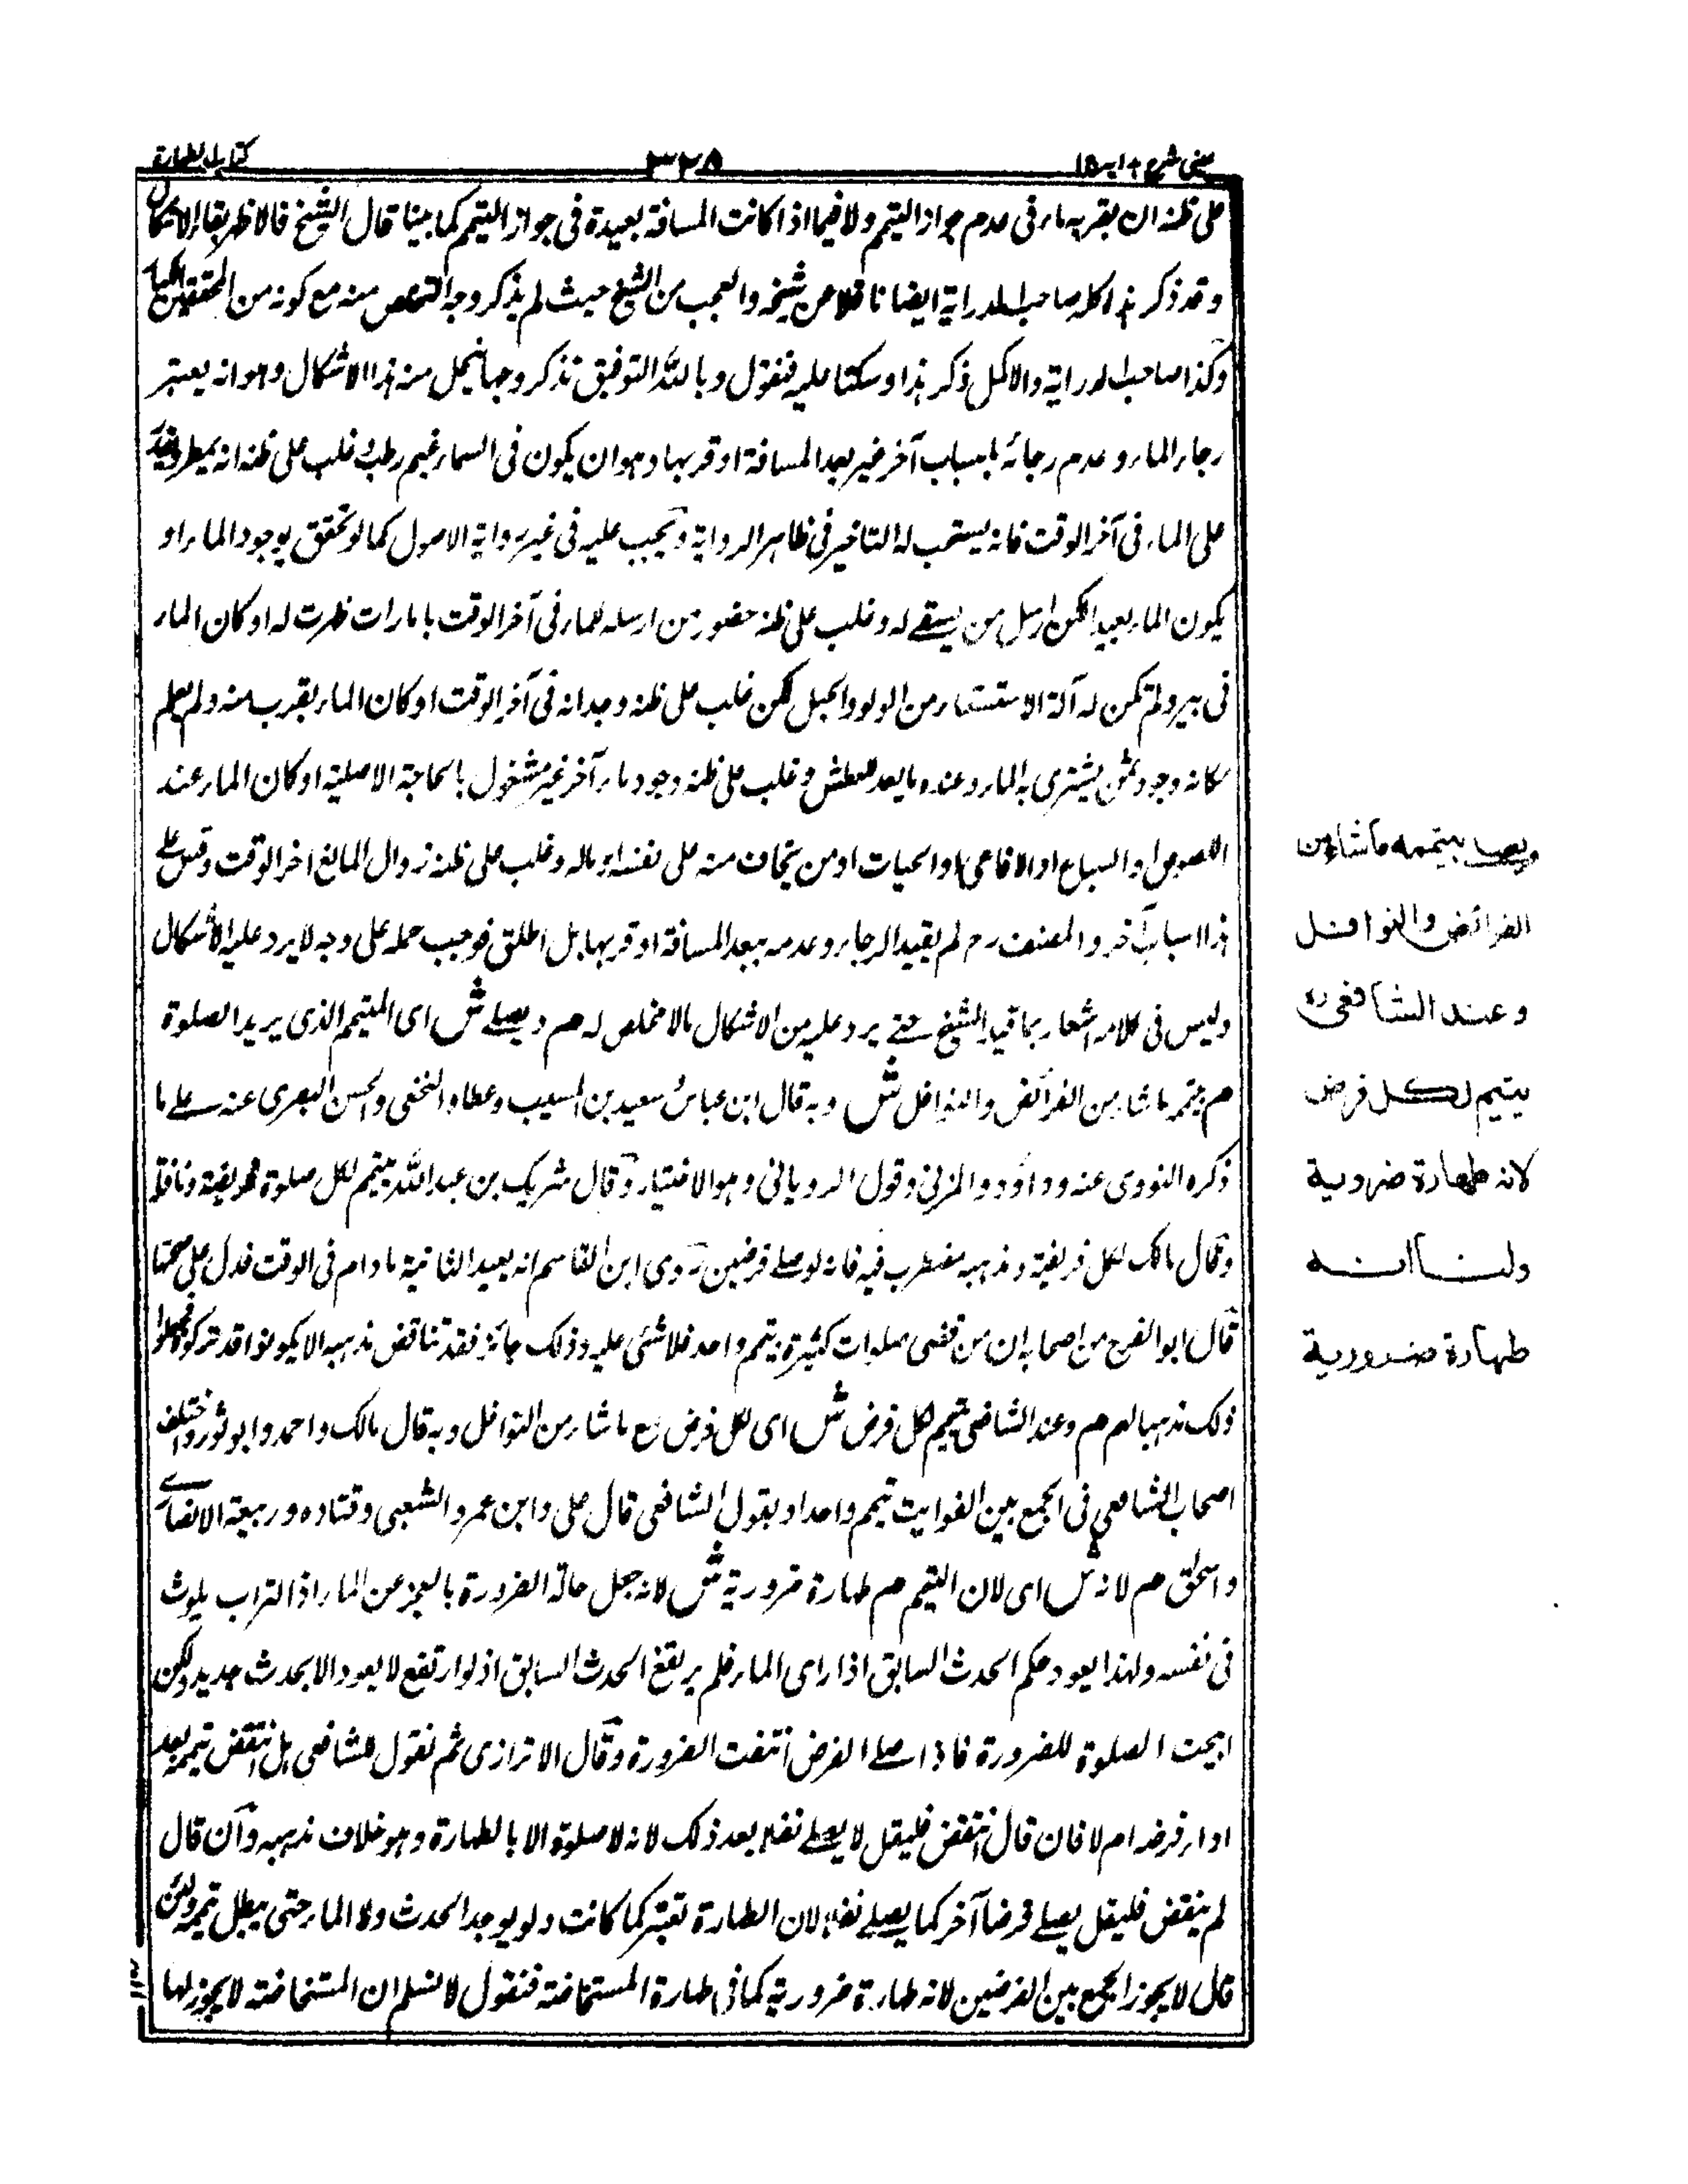 عینی شرح ہدایہ ج ۱
۳۲۵
کتاب الطهارة
على ظنه ان بقربه ماء فى عدم جواز التيمم ولا فيما اذا كانت المسافة بعيدة فى جواز التيمم كما بينا قال الشيخ فالاظهر بقاء الاشكال
وقد ذكر هذا كله صاحب الدراية ايضا ناقلا عن شيخه والعجب من الشيخ حيث لم يذكر وجه التخلص منه مع كونه من المحققين الكبار
وكذا صاحب الدراية والاكمل ذكر هذا وسكتا عليه فنقول وبالله التوفيق نذكر وجها ينحل منه هذا الاشكال وهو انه يعتبر
رجاء الماء وعدم رجائه باسباب آخر غير بعد المسافة او قربها وهو ان يكون فى السماء غيم رطب وغلب على ظنه انه يمطر ويقدر
على الماء فى آخر الوقت فانه يستحب له التاخير فى ظاهر الرواية ويجب عليه فى غير رواية الاصول كما لو تحقق بوجود الماء او
يكون الماء بعيدا لكن ارسل من يستقى له وغلب على ظنه حضور من ارسله للماء فى آخر الوقت بامارات ظهرت له او كان الماء
فى بير ولم تكن له آلة الاستقاء من الدلو والحبل لكن غلب على ظنه وجدانه فى آخر الوقت او كان الماء بقرب منه ولم يعلم
مكانه وجود ثمن يشترى به الماء وعنده ما يعد للعطش وغلب على ظنه وجود ماء آخر غير مشغول بالحاجة الاصلية او كان الماء عند
اللصوص او السباع او الافاعى او الحيات او من يخاف منه على نفسه او ماله وغلب على ظنه زوال المانع اخر الوقت وقس على
هذا اسباب آخر والمصنف رح لم يقيد الرجاء وعدمه ببعد المسافة او قربها بل اطلق فوجب حمله على وجه لا يرد عليه الاشكال
وليس فى كلامه اشعار بما قيد الشيخ حتى يرد عليه من الاشكال مالا مخلص له م ويصلى ش اى المتيمم الذى يريد الصلوة
م بتيممه ما شاء من الفرائض والنوافل ش وبه قال ابن عباس وسعيد بن المسيب وعطا والنخعى والحسن البصرى عنه على ما
ذكره النووى عنه وداؤد والمزنى وقول الرويانى وهو الاختيار وقال شريك بن عبد الله يتيمم لكل صلوة فريضة ونافلة
وقال مالك لكل فريضة ومذهبه مضطرب فيه فانه لو صلى فرضين روى ابن القاسم انه يعيد الثانية مادام فى الوقت فدل على صحتها
قال ابو الفرج من اصحابه ان من قضى صلوات كثيرة بتيمم واحد فلا شئ عليه وذلك جائز فقد تناقض مذهبه الا يكونوا قد تركوا فجعلوا
ذلك مذهبا لهم م وعند الشافعى يتيمم لكل فرض ش اى لكل فرض مع ما شاء من النوافل وبه قال مالك واحمد وابو ثور واختلف
اصحاب الشافعى فى الجمع بين الفوايت بتيمم واحد وبقول الشافعى قال على وابن عمر والشعبى وقتاده وربيعة الانصارى
واسحق م لانه ش اى لان التيمم م طهارة ضرورية ش لانه جعل حالة الضرورة بالعجز عن الماء اذ التراب يلوث
فى نفسه ولهذا يعود حكم الحدث السابق اذا راى الماء فلم يرتفع الحدث السابق اذ لو ارتفع لا يعود الا بحدث جديد ولكن
ابيحت الصلوة للضرورة فاذا صلى الفرض انتفت الضرورة وقال الاترازى ثم نقول للشافعى هل انتقض تيممه بعد
اداء فرضه ام لا فان قال انتقض فليقل لا يصلى نفلا بعد ذلك لانه لا صلوة الا بالطهارة وهو خلاف مذهبه وان قال
لم ينتقض فليقل يصلى فرضا آخر كما يصلى نفلا لان الطهارة تعتبر كما كانت ولو يوجد الحدث ولا الماء حتى يبطل تيممه ولئن
قال لا يجوز الجمع بين الفرضين لانه طهارة ضرورية كما فى طهارة المستحاضة فنقول لا نسلم ان المستحاضة لا يجوز لها
ويصلى بتيممه ما شاء من
الفرائض والنوافل
وعند الشافعى رح
يتيم لكل فرض
لانه طهارة ضرورية
ولنا انه
طهارة ضرورية